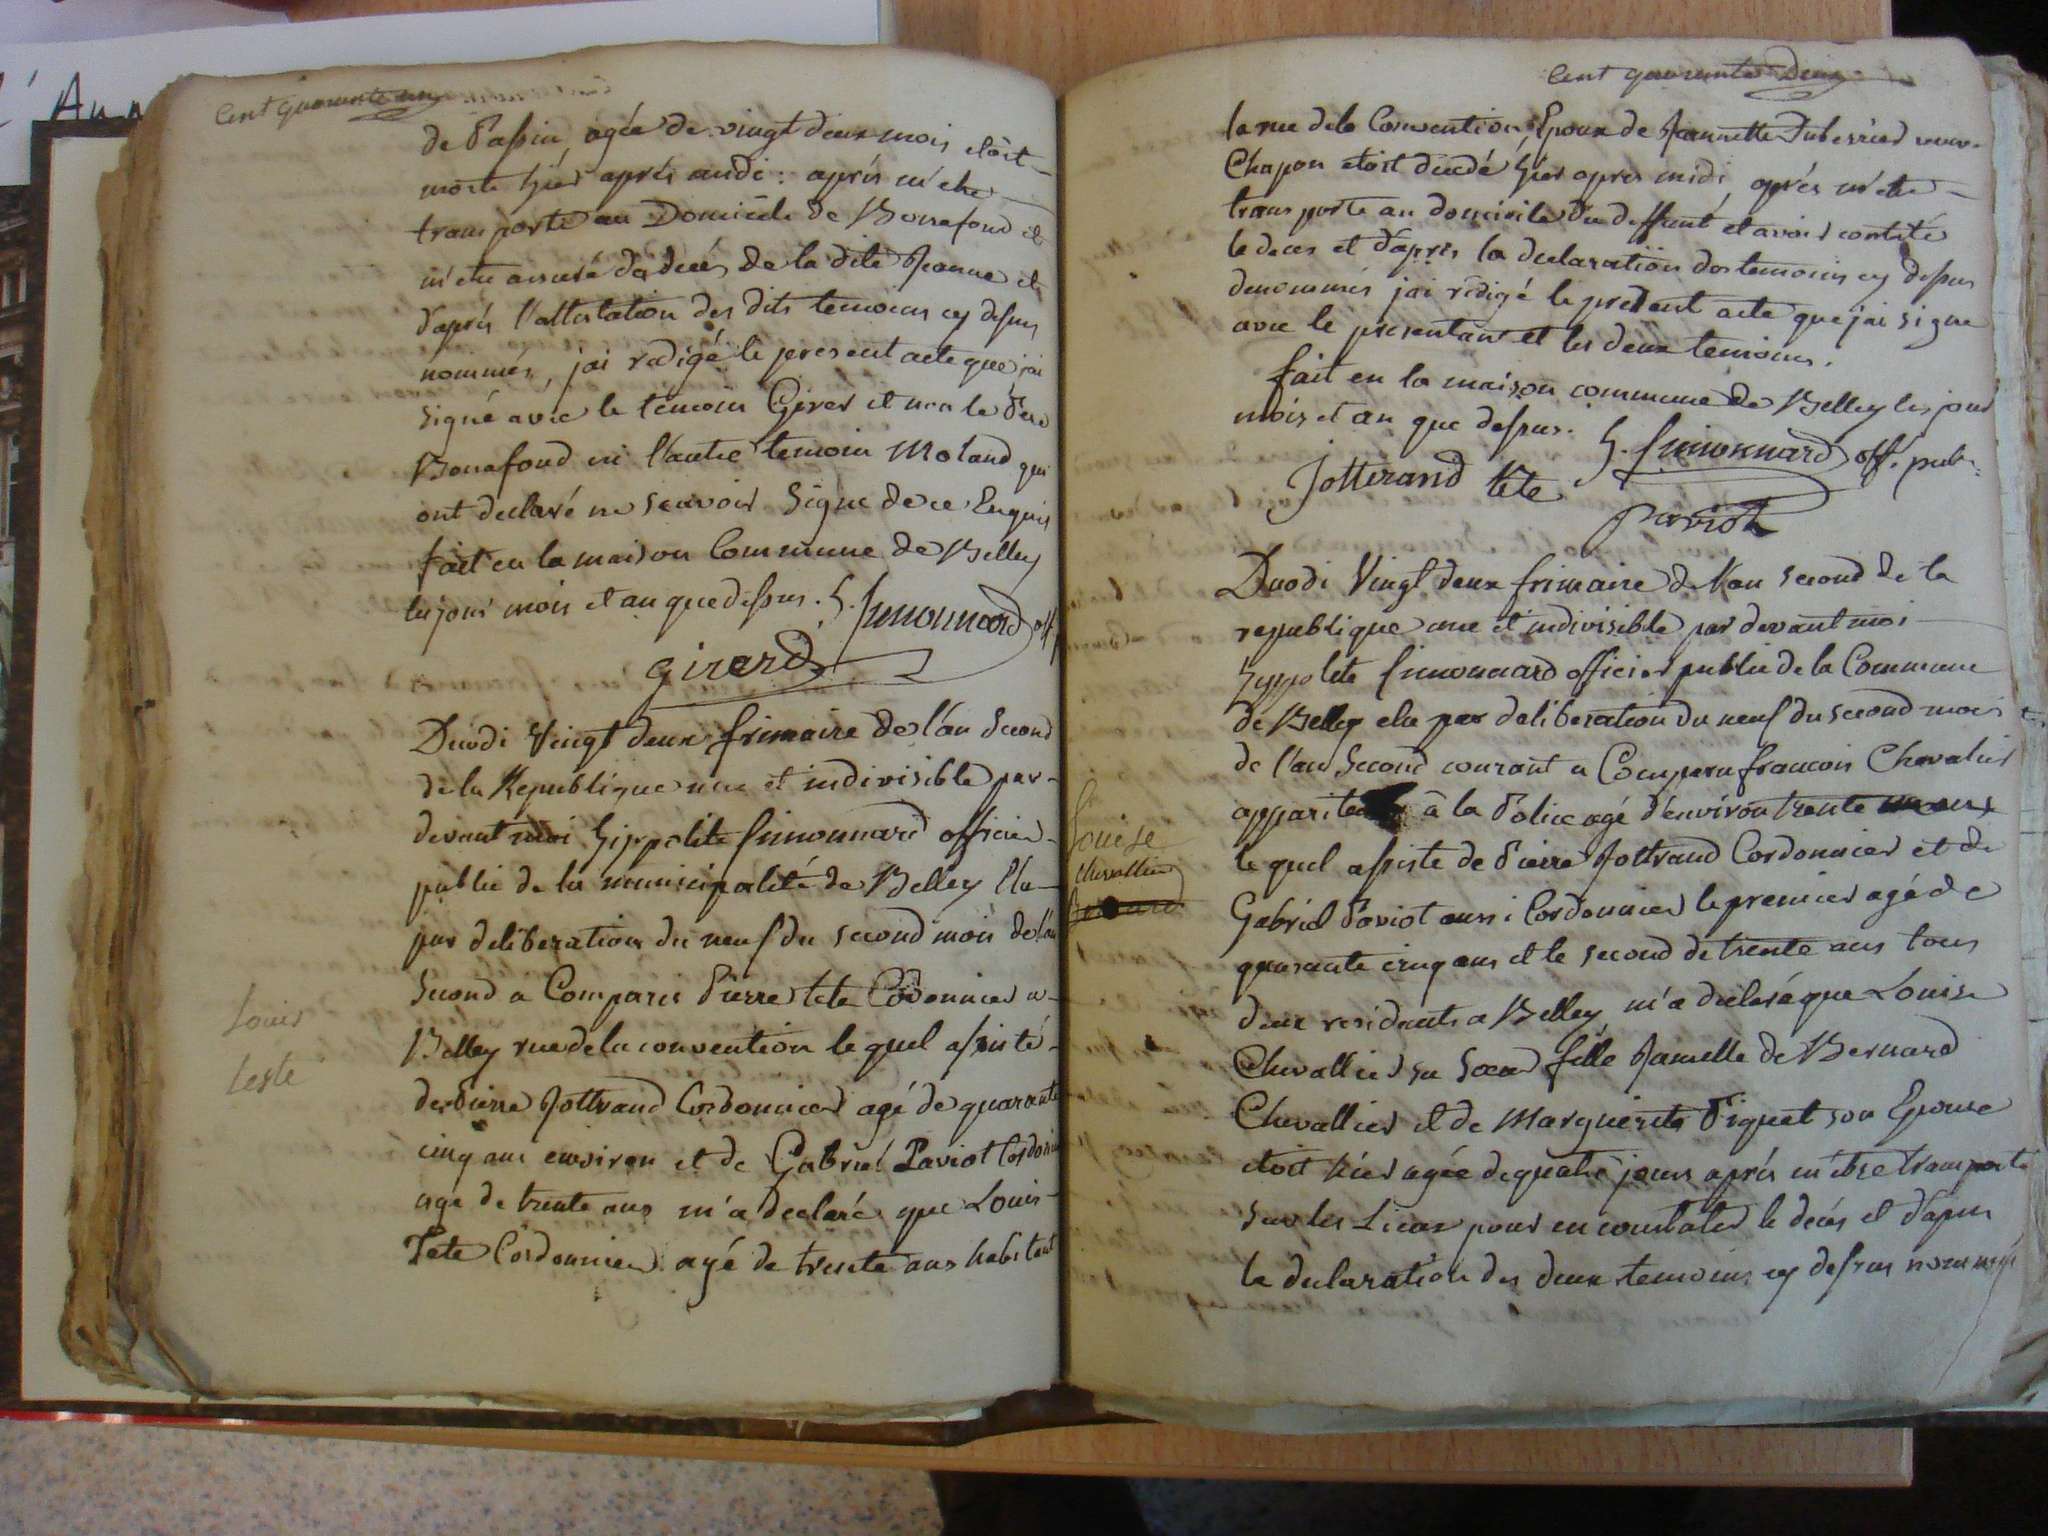 l'Ann
Cent quarante un
de Passin, agée de vingt deux mois etoit
morte hier après midi : après m'etre
transporté au Domicile de Bonnefond et
m'etre assuré du decés de la dite Jeanne et
d'après l'attestation des dits temoins cy dessus
nommés, jai redigé le present acte que jai
signé avec le temoin et non le Pere
Bonnefond ni l'autre temoin Moland qui
ont declaré ne scavoir signe de ce Enquis
fait en la maison Commune de Belley
les jour mois et an que dessus. h. Simonnard off
girard
Duodi Vingt deux frimaire de l'an Second
de la Republique une et indivisible par-
devant moi hippolite Simonnard officier
public de la municipalité de Belley Elu
par deliberation du neuf du second mois de l'an
Second a Comparu Pierre tete Cordonnier a
Louis
teste
Belley rue de la convention le quel assisté
de Pierre Jottrand Cordonnier agé de quarante
cinq ans environ et de Gabriel Paviot Cordonnier
agé de trente ans m'a declaré que Louis
Tete Cordonnier agé de trente ans habitant
Cent quarante Deux
la rue dela Convention Epoux de Jeannette veuve
Chapon etoit decedé hier apres midi, après m'etre
transporté au domicile du deffunt et avoir contaté
le deces et d'après la declaration des temoins cy dessus
denommés jai redigé le present acte que jai signe
avec le presentant et les deux temoins.
fait en la maison commune de Belley les jour
mois et an que dessus. h. Simonnard off. pub.
Jotterand tete
paviot
Duodi Vingt deux frimaire de l'an second de la
republique une et indivisible par devant moi
hyppolite Simonnard officier public de la Commune
de Belley elu par deliberation du neuf du second mois
de l'an Second courant a Comparu francois Chevalier
appariteur à la Police agé d'environ trente ans
Louise
chevallier
Bernard
le quel assisté de Pierre Jottrand Cordonnier et de
Gabriel Paviot aussi Cordonnier le premier agé de
quarante cinq ans et le second de trente ans tous
deux residents a Belley m'a declaré que Louise
Chevallier sa Soeur fille Jumelle de Bernard
Chevallier et de Marguerite Piquet son Epouse
etoit hier agée de quatre jours après m'etre transporté
sur les Lieux pour en constater le decés et d'après
la declaration des deux temoins cy dessus nommés